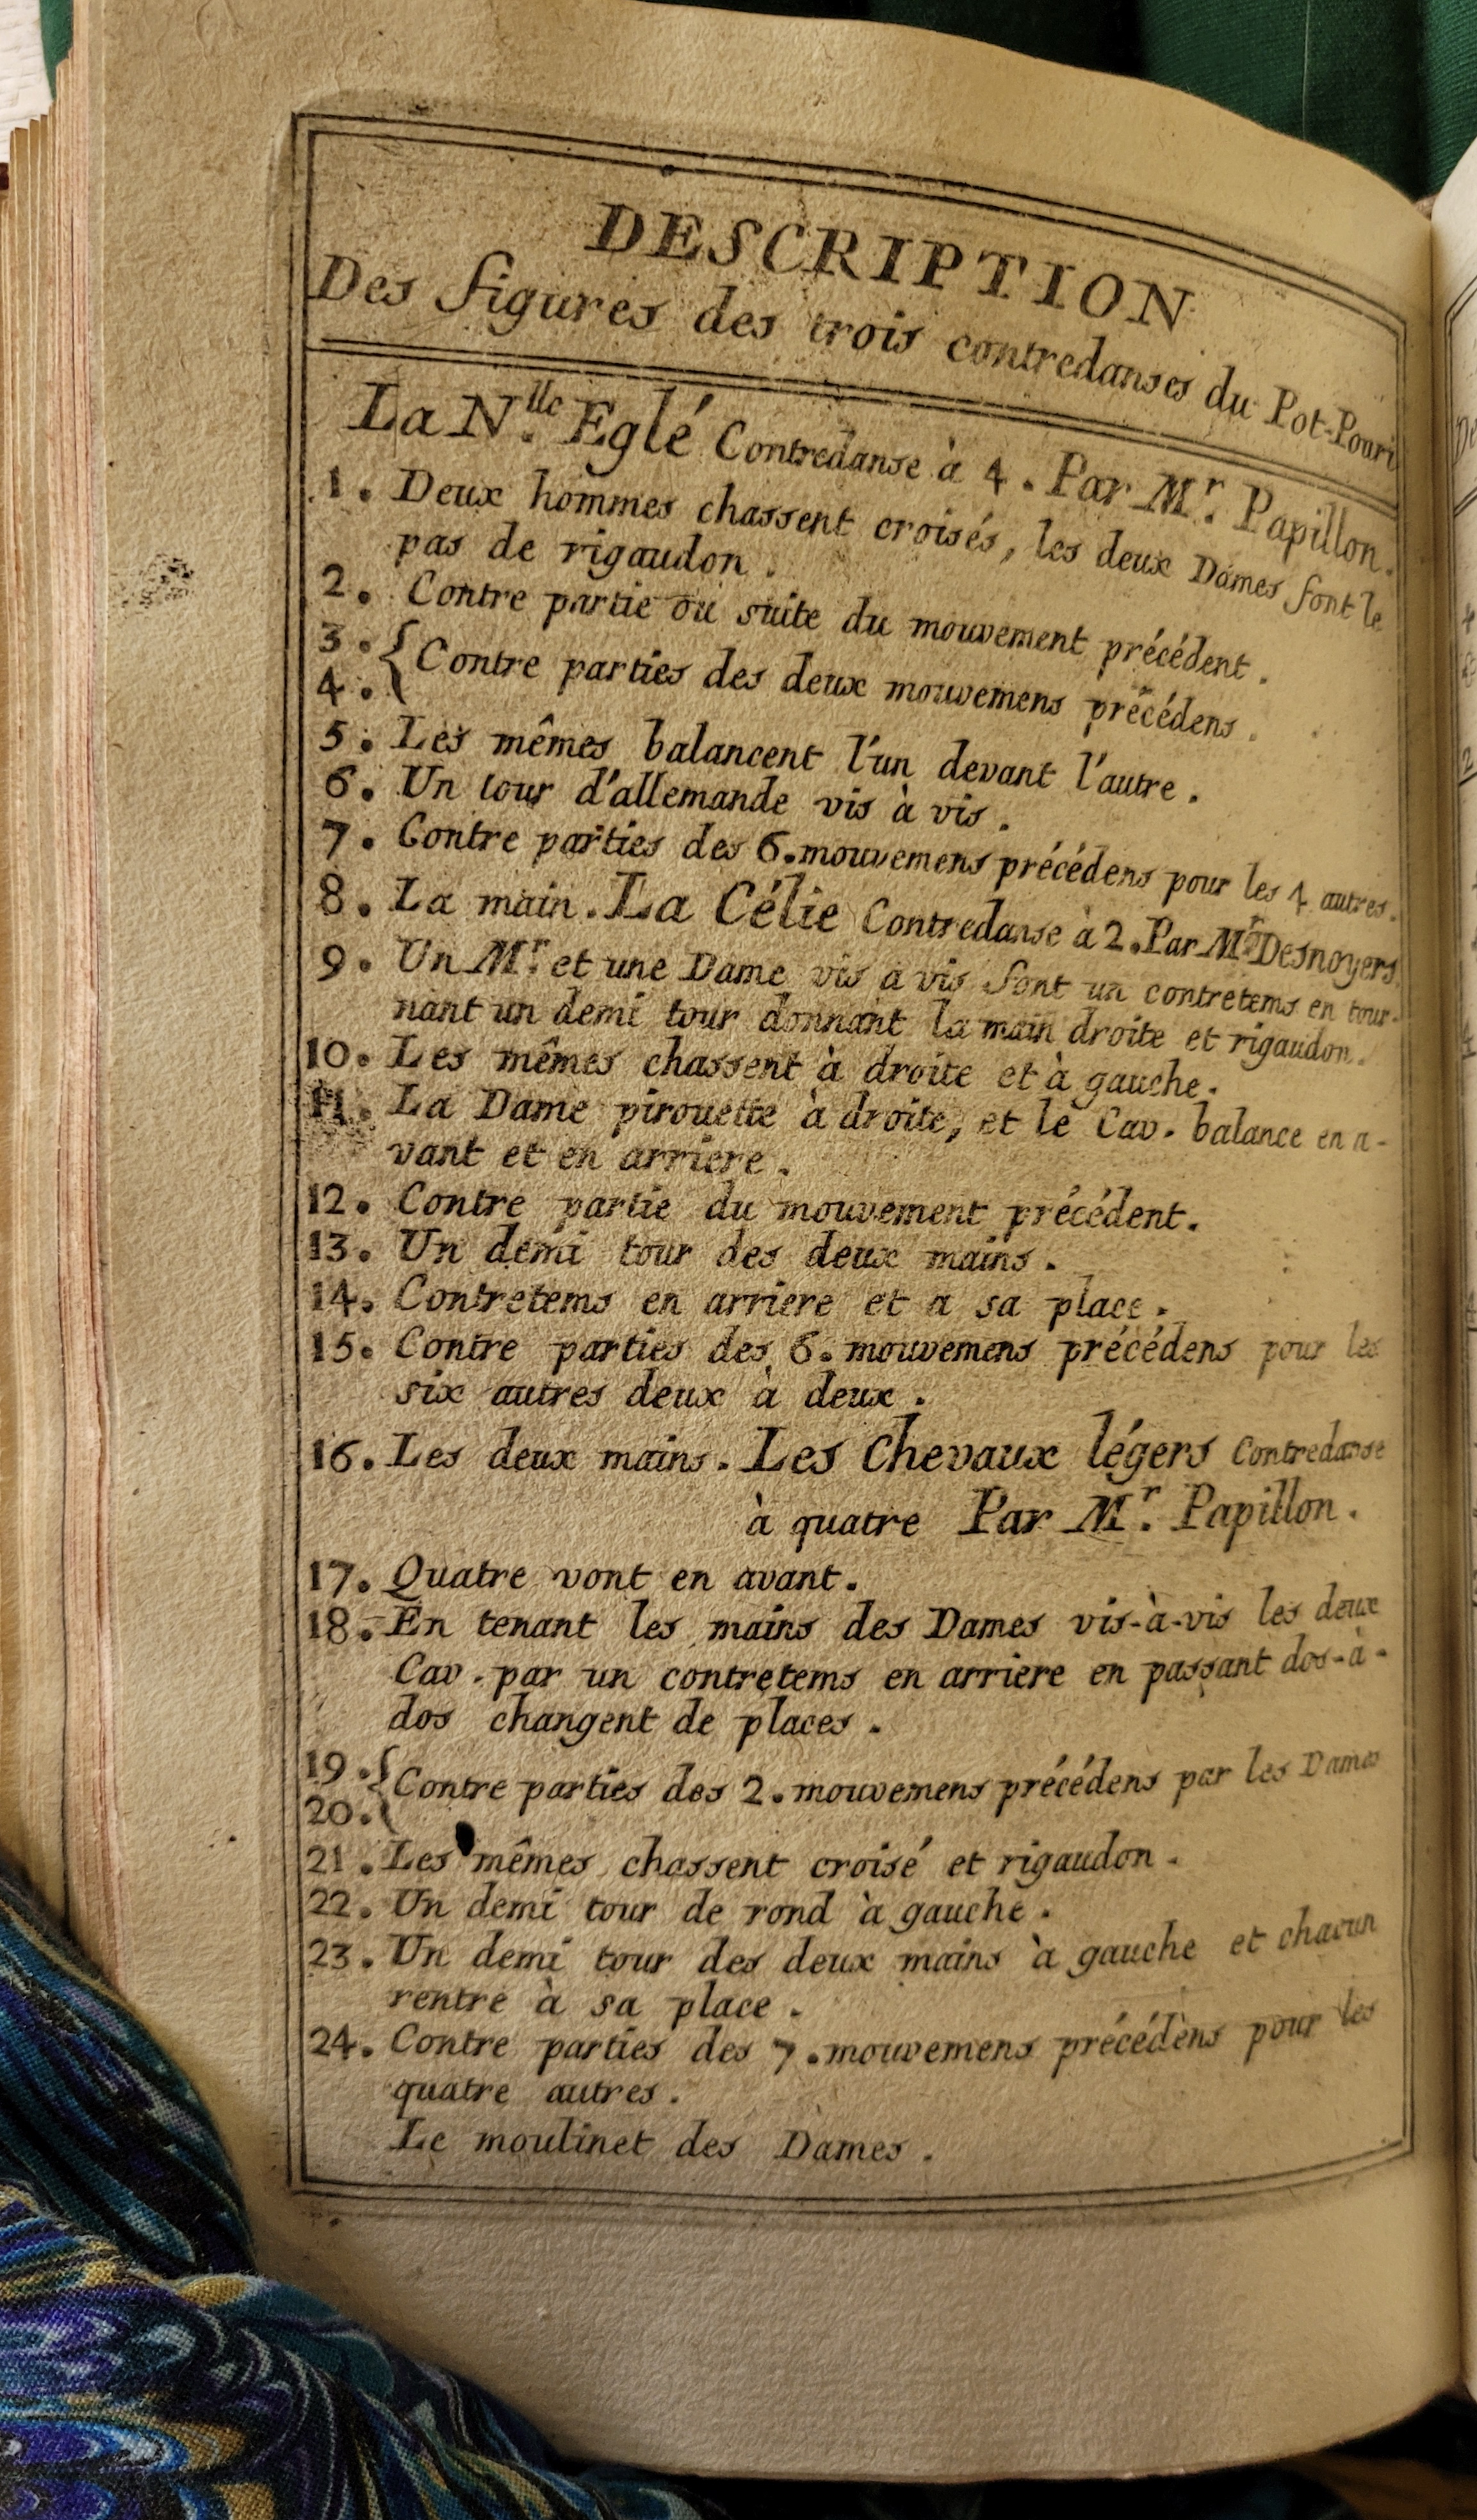 DESCRIPTION
Des figures des trois contredanses du Pot-Pouri
La N.lle Eglé Contredanse à 4. Par Mr. Papillon.
1. Deux hommes chassent croisés, les deux Dames font le
pas de rigaudon.
2. Contre partie ou suite du mouvement précédent.
3. { Contre parties des deux mouvemens précédens.
4.
5. Les mêmes balancent l'un devant l'autre.
6. Un tour d'allemande vis à vis.
7. Contre parties des 6. mouvemens précédens pour les 4 autres.
8. La main. La Célie Contredanse à 2. Par Mr Desnoyers
9. Un Mr. et une Dame vis a vis font un contretems en tour-
nant un demi tour donnant la main droite et rigaudon.
10. Les mêmes chassent à droite et à gauche.
11. La Dame pirouette à droite, et le Cav. balance en a-
vant et en arriere.
12. Contre partie du mouvement précédent.
13. Un demi tour des deux mains.
14. Contretems en arriere et a sa place.
15. Contre parties des 6. mouvemens précédens pour les
six autres deux à deux.
16. Les deux mains. Les Chevaux légers Contredanse
à quatre Par Mr. Papillon.
17. Quatre vont en avant.
18. En tenant les mains des Dames vis-à-vis les deux
Cav. par un contretems en arriere en passant dos-à-
dos changent de places.
19. { Contre parties des 2. mouvemens précédens par les Dames
20.
21. Les mêmes chassent croisé et rigaudon.
22. Un demi tour de rond à gauche.
23. Un demi tour des deux mains à gauche et chacun
rentre à sa place.
24. Contre parties des 7. mouvemens précédens pour les
quatre autres.
Le moulinet des Dames.